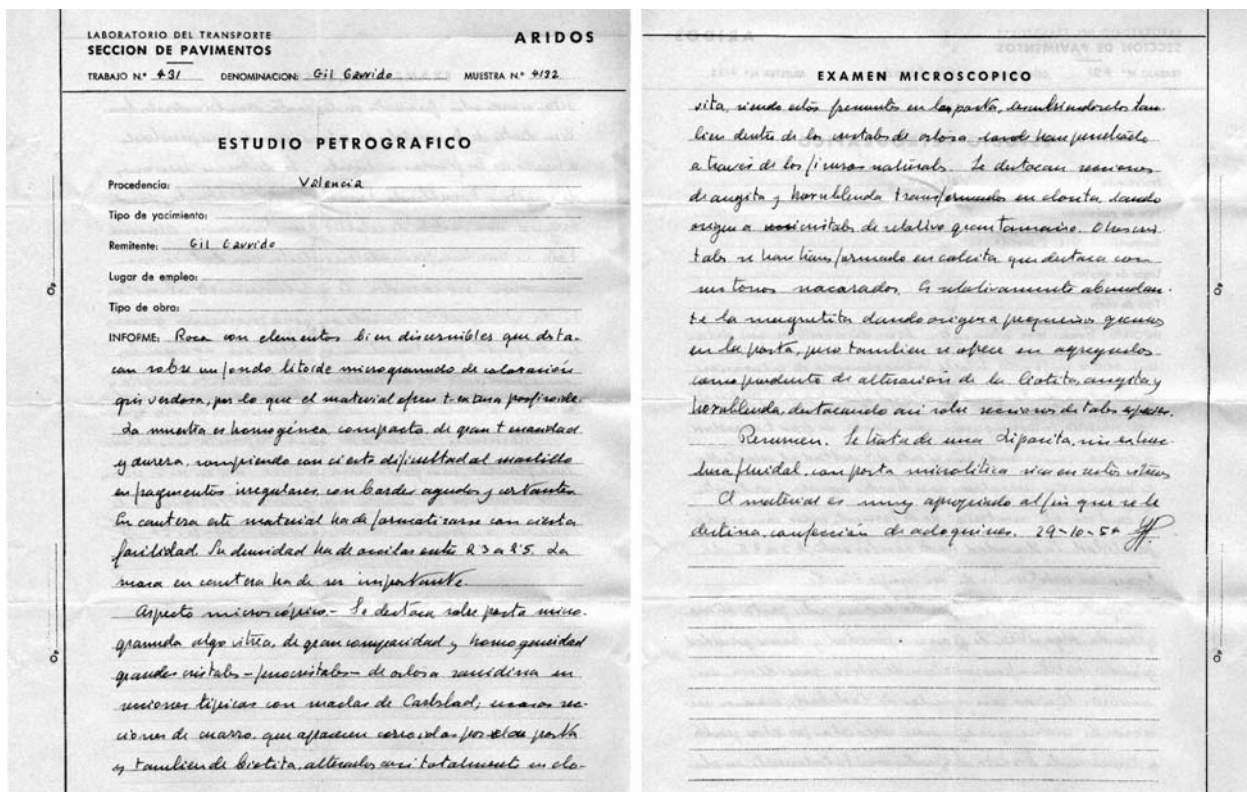 LABORATORIO DEL TRANSPORTE
SECCION DE PAVIMENTOS
ARIDOS
TRABAJO N.º 431 DENOMINACION: Gil Garrido MUESTRA N.º 4132
ESTUDIO PETROGRAFICO
Procedencia: Valencia
Tipo de yacimiento:
Remitente: Gil Garrido
Lugar de empleo:
Tipo de obra:
INFORME: Roca con elementos bien discernibles que desta-
can sobre un fondo litoide microgranudo de coloración
gris verdosa, por lo que el material ofrece textura porfiroide.
La muestra es homogénea compacta de gran tenacidad
y dureza, rompiendo con cierta dificultad al martillo
en fragmentos irregulares con bordes agudos y cortantes
En cantera este material ha de formatizarse con cierta
facilidad. Su densidad ha de oscilar entre 2'3 a 2'5. La
masa en cantera ha de ser importante.
Aspecto microscópico - Se destaca sobre pasta micro-
granuda algo vítrea, de gran compacidad y homogeneidad
grandes cristales - fenocristales - de ortosa sanidina en
secciones típicas con maclas de Carlsbad; escasas sec-
ciones de cuarzo, que aparecen corroidas por la pasta
y tambien de biotita, alterados casi totalmente en clo-
EXAMEN MICROSCOPICO
rita, siendo estos frecuentes en la pasta, descubriendoselos tam-
bien dentro de los cristales de ortosa donde han penetrado
a través de las fisuras naturales. Se destacan secciones
de augita y hornblenda transformados en clorita dando
origen a cristales de relativo gran tamaño. Otros cris-
tales se han transformado en calcita que destaca con
sus tonos nacarados. Es relativamente abundan-
te la magnetita dando origen a pequeños granos
en la pasta, pero tambien se ofrece en agregados
como producto de alteracion de la biotita, augita y
hornblenda, destacando asi sobre secciones de tales especies.
Resumen. Se trata de una diparita, sin estruc-
tura fluidal, con pasta microlítica rica en restos vítreos
El material es muy apropiado al fin que se le
destina, confección de adoquines. 29-10-54